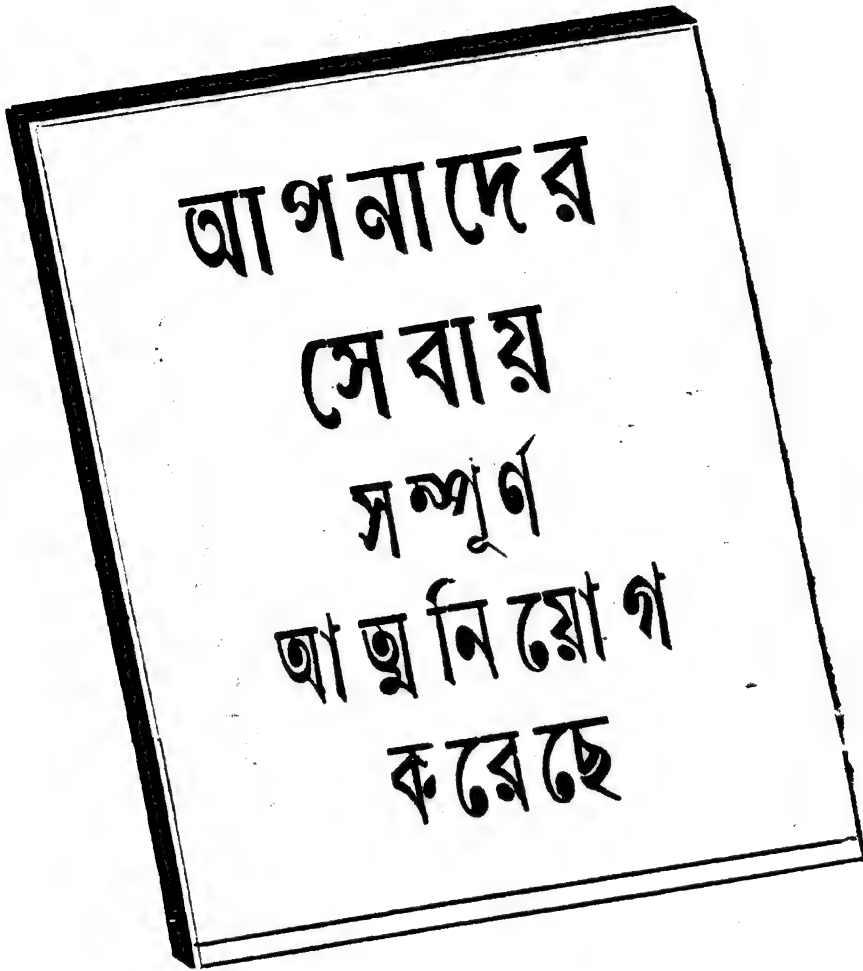 আপনাদের
সেবায়
সম্পূর্ণ
আত্মনিয়োগ
করেছে